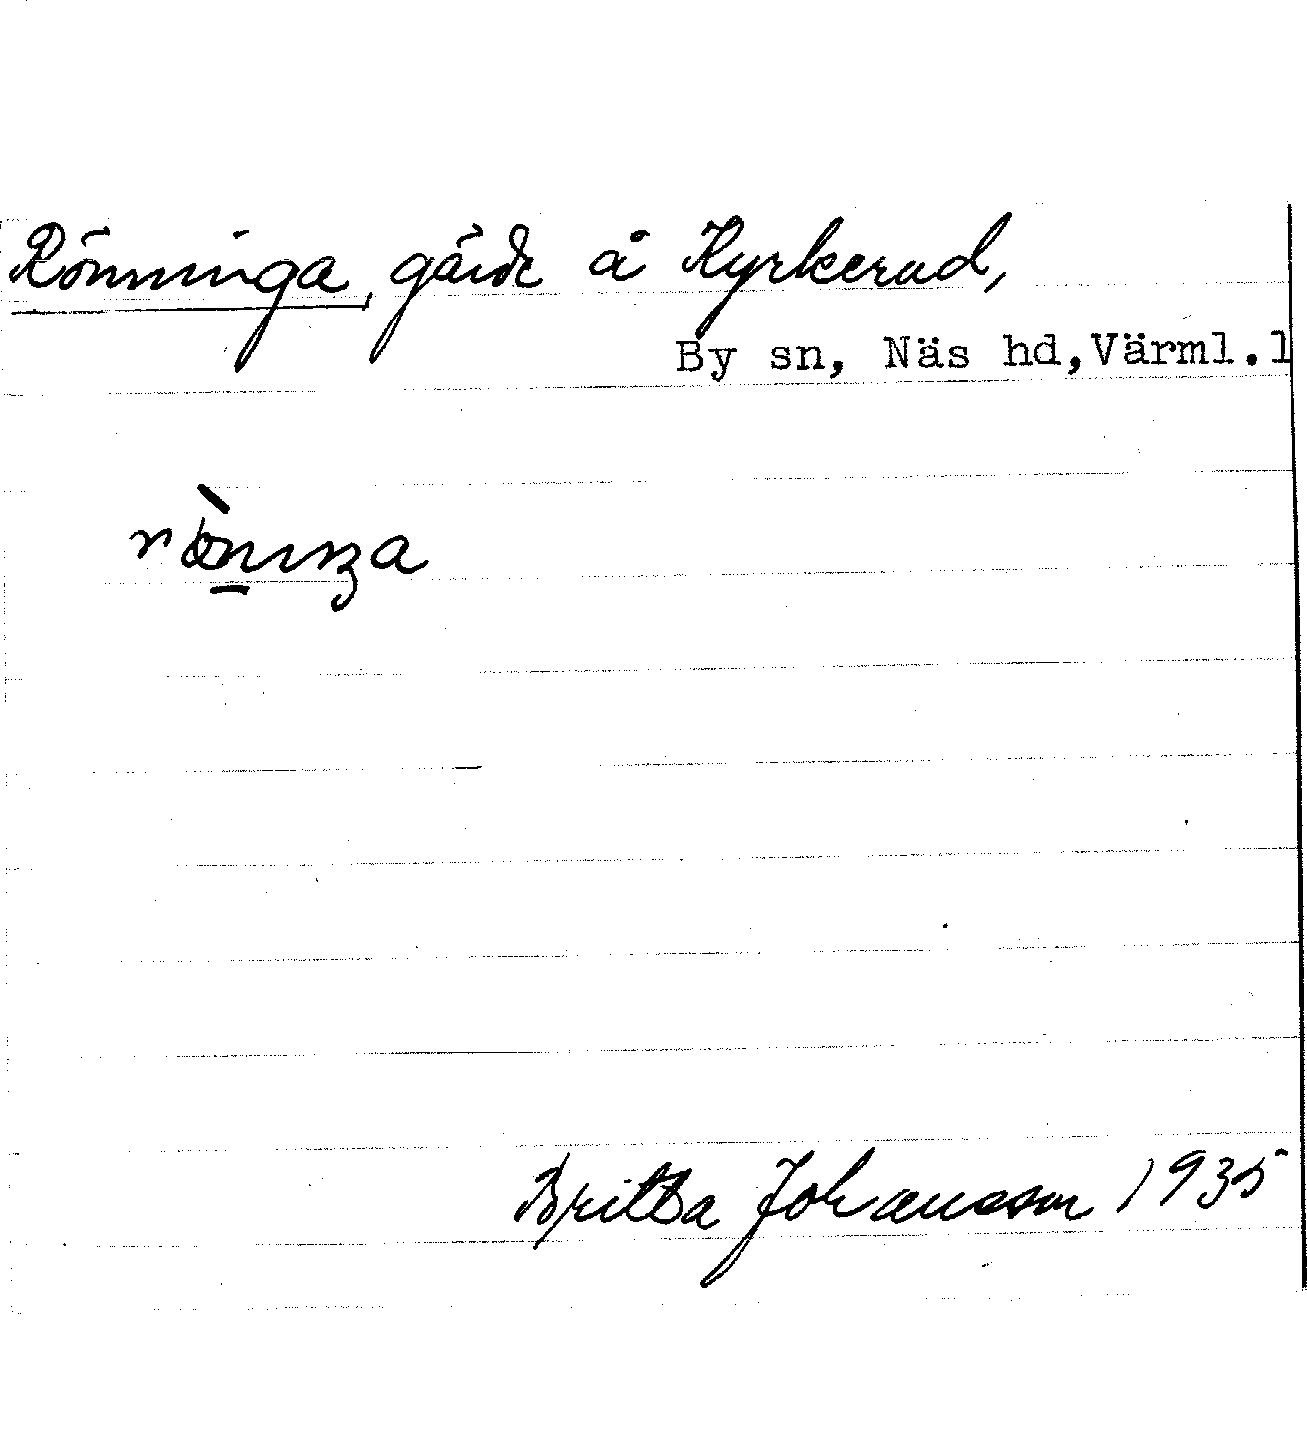 Rönninga, gärde å Kyrkerud,
By sn, Näs hd,Värml.l
Britta Johansson 1935